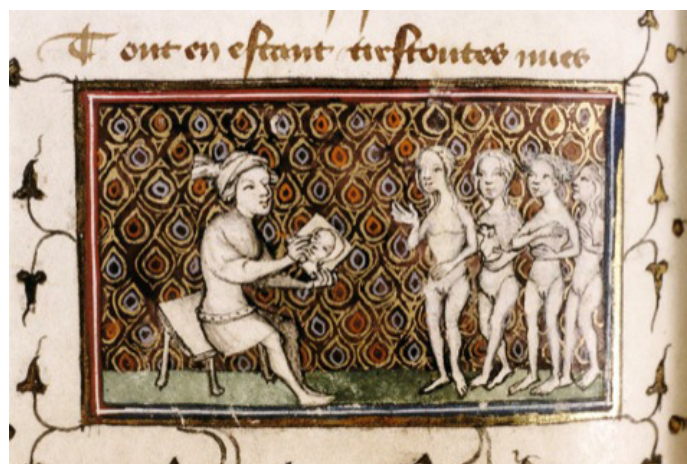 Tout en estant trestoutes nues